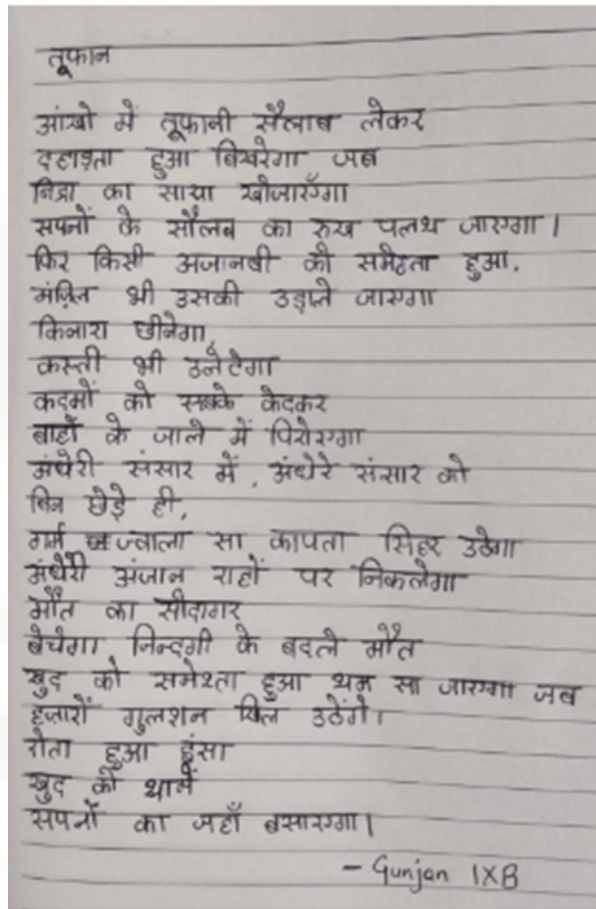 तूफान
आंखो में तूफानी सैलाब लेकर
दहाड़ता हुआ बिखरेगा जब
निद्रा का साया खोजाएँगा
सपनों के सौलब का रुख पलथ जाएगा।
फिर किसी अजानबी को समेटता हुआ,
मंज़िल भी उसकी उड़ाते जाएगा
किनारा छीनेगा,
कस्ती भी उलेटेगा
कदमों को सबके केदकर
बाहों के जाले में पिरोएगा
अंधेरी संसार में, अंधेरे संसार को
बिन छेड़े ही,
गर्म ज्वाला सा कापता सिहर उठेगा
अंधेरी अंजान राहों पर निकलेगा
मौत का सौदागर
बेचेगा जिन्दगी के बदले मौत
खुद को समेटता हुआ थम सा जाएगा जब
हजारों गुलशन खिल उठेंगे।
रोता हुआ हंसा
खुद को थामें
सपनों का जहाँ बसाएगा।
- Gunjan IXB